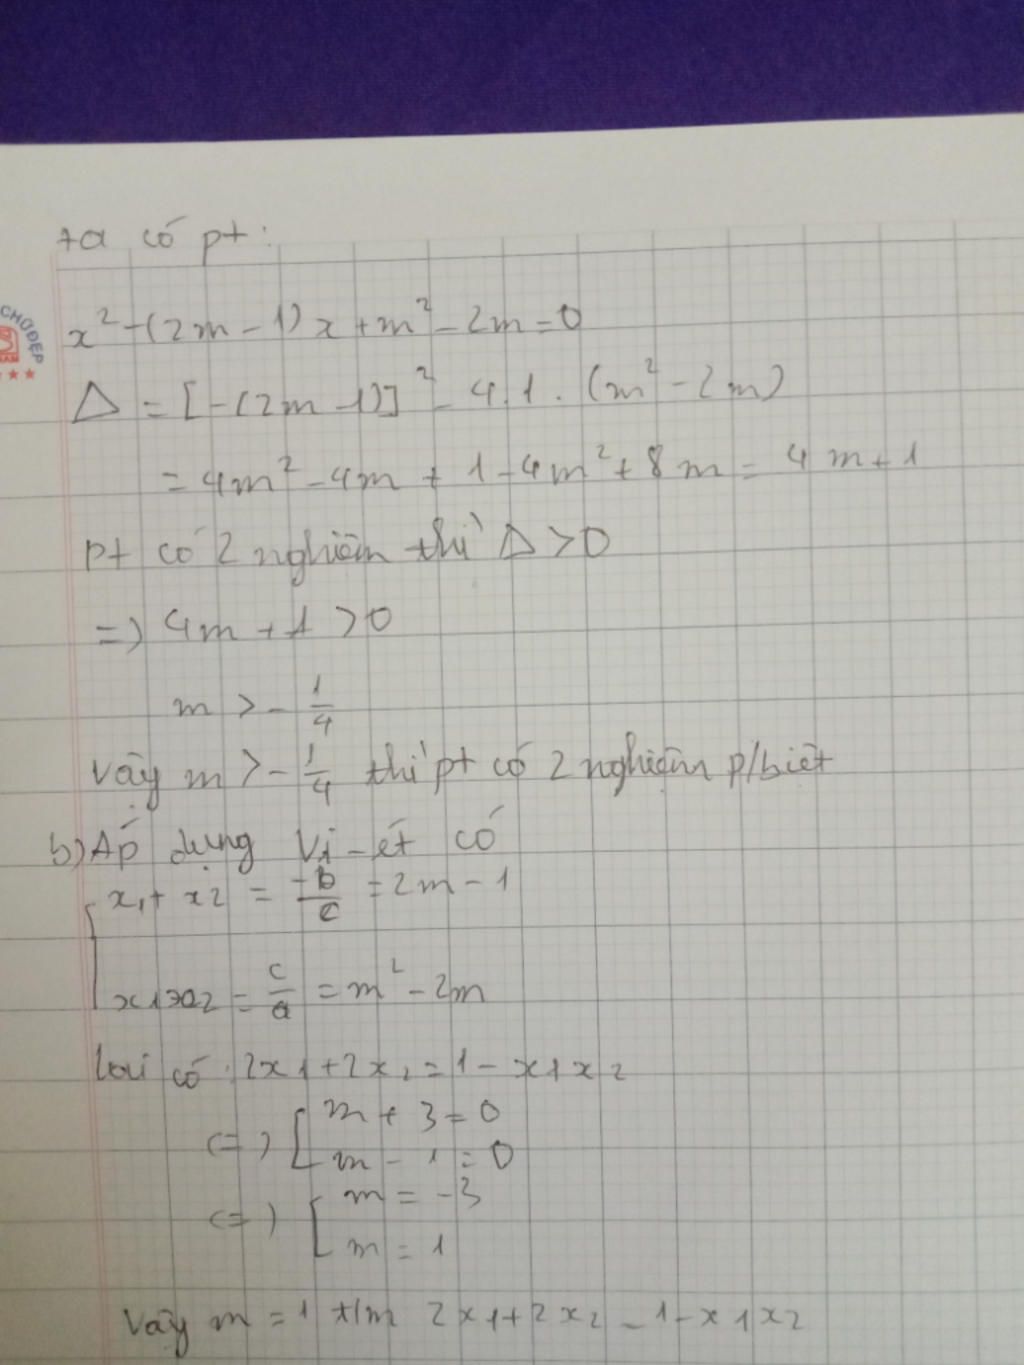 ta có pt:
x² - (2m - 1) x + m² - 2m = 0
Δ = [-(2m - 1)]² - 4.1. (m² - 2m)
= 4m² - 4m + 1 - 4m² + 8m = 4m + 1
pt có 2 nghiệm thì Δ > 0
=> 4m + 1 > 0
m > - 1/4
vậy m > - 1/4 thì pt có 2 nghiệm p/biệt
b) Áp dụng Vi-ét có
x1 + x2 = -b/c = 2m - 1
x1x2 = c/a = m² - 2m
Lại có: 2x1 + 2x2 = 1 - x1x2
<=> [ m + 3 = 0
m - 1 = 0
<=> [ m = -3
m = 1
Vậy m = 1 t/m 2x1 + 2x2 = 1 - x1x2
CHỮ ĐẸP